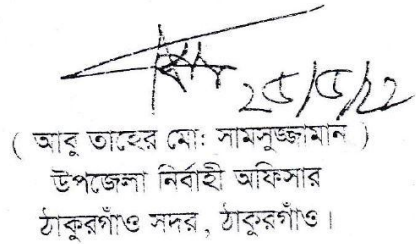 25/5/22
( আবু তাহের মোঃ সামসুজ্জামান )
উপজেলা নির্বাহী অফিসার
ঠাকুরগাঁও সদর, ঠাকুরগাঁও।